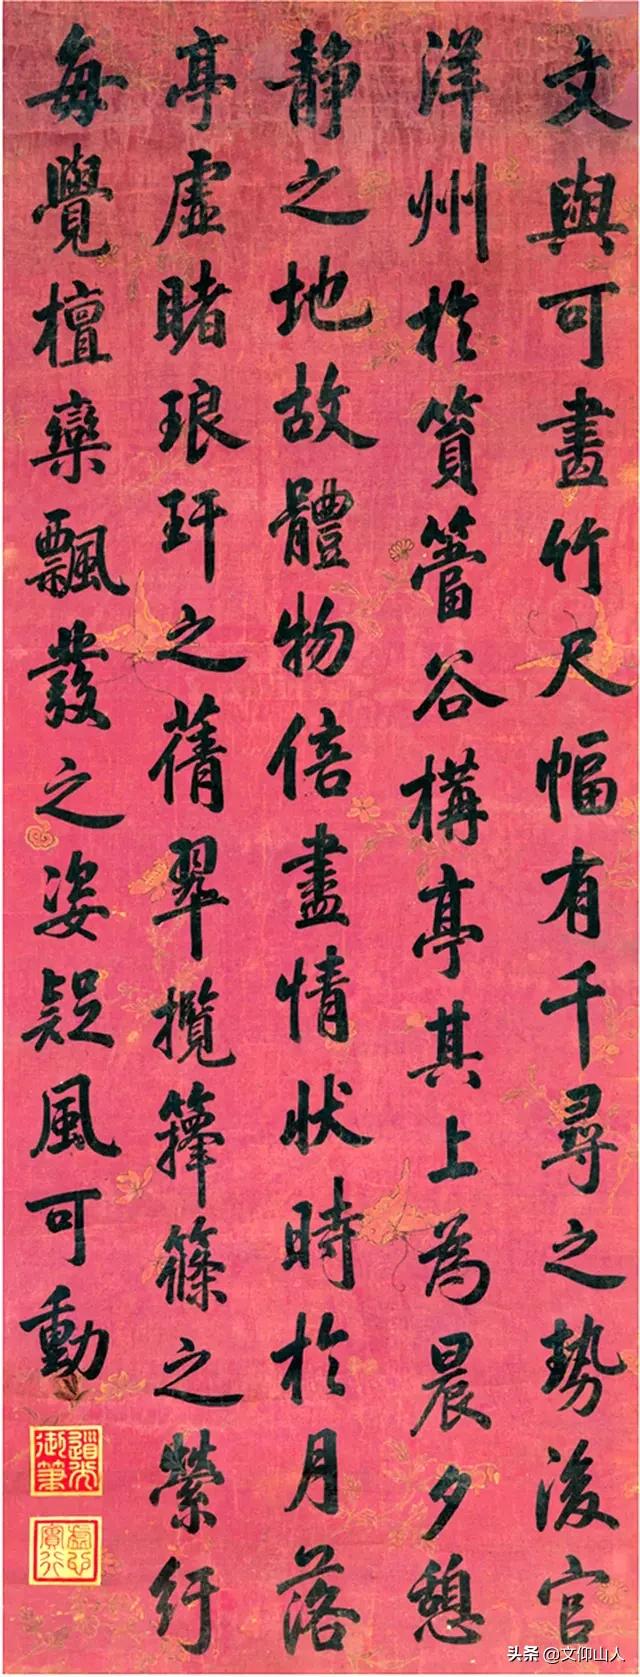 文與可畫竹尺幅有千尋之勢後官
洋州於篔簹谷構亭其上為晨夕憩
静之地故體物倍盡情狀時於月落
亭虛睹琅玕之蒨翠攬籜篠之縈紆
每覺檀欒飄發之姿疑風可動
道光
御筆
虛心
實行
头条 @文仰山人